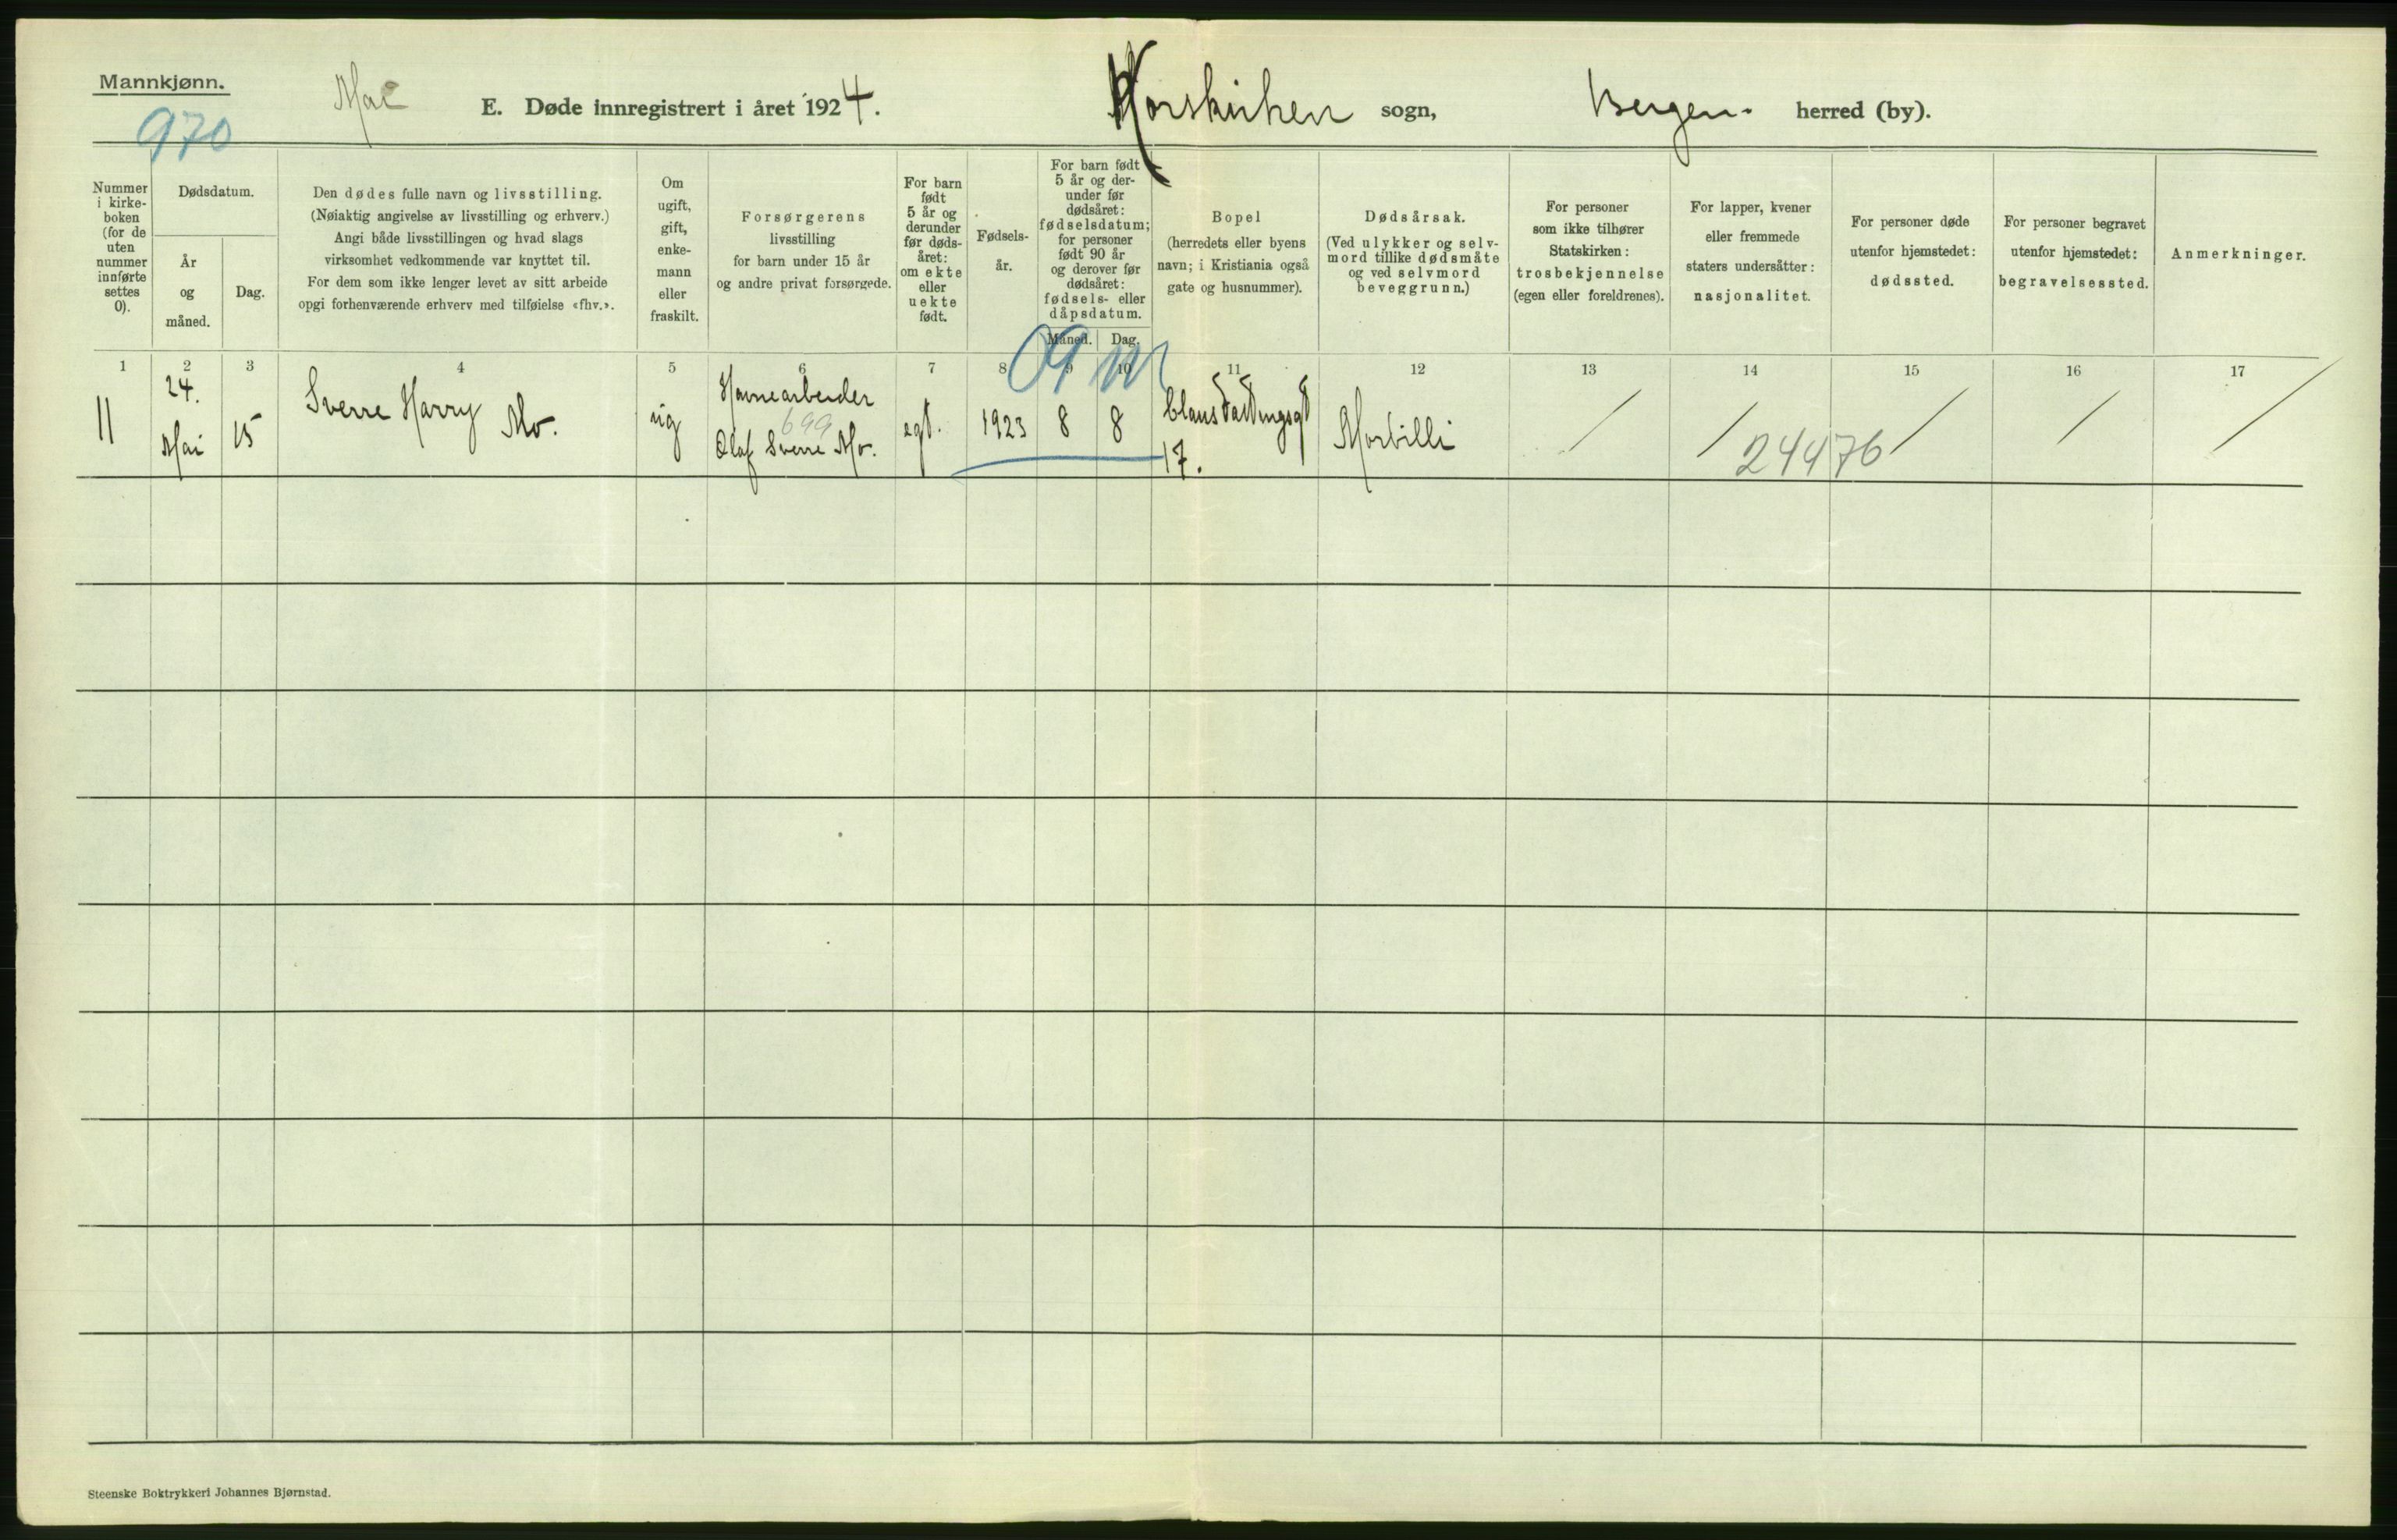 Mannkjønn.
970
Mai
E. Døde innregistrert i året 1924.
Korskirken sogn,
Bergen. herred (by).
Nummer
i kirke-
boken
(for de
uten
nummer
innførte
settes
0).
Dødsdatum.
År
og
måned.
Dag.
Den dødes fulle navn og livsstilling.
(Nøiaktig angivelse av livsstilling og erhverv.)
Angi både livsstillingen og hvad slags
virksomhet vedkommende var knyttet til.
For dem som ikke lenger levet av sitt arbeide
opgi forhenværende erhverv med tilføielse «fhv.».
Om
ugift,
gift,
enke-
mann
eller
fraskilt.
Forsørgerens
livsstilling
for barn under 15 år
og andre privat forsørgede.
For barn
født
5 år og
derunder
før døds-
året:
om ekte
eller
uekte
født.
Fødsels-
år.
For barn født
5 år og der-
under før
dødsåret:
fødselsdatum;
for personer
født 90 år
og derover før
dødsåret:
fødsels- eller
dåpsdatum.
Måned.
Dag.
Bopel
(herredets eller byens
navn; i Kristiania også
gate og husnummer).
Dødsårsak.
(Ved ulykker og selv-
mord tillike dødsmåte
og ved selvmord
beveggrunn.)
For personer
som ikke tilhører
Statskirken:
trosbekjennelse
(egen eller foreldrenes).
For lapper, kvener
eller fremmede
staters undersåtter:
nasjonalitet.
For personer døde
utenfor hjemstedet:
dødssted.
For personer begravet
utenfor hjemstedet:
begravelsessted.
Anmerkninger.
1 2 3 4 5 6 7 8 9 10 11 12 13 14 15 16 17
09 m
11
24.
Mai
15
Sverre Harry Mo.
ug
Havnearbeider
699
Olaf Sverre Mo.
egt.
1923
8
8
Claus
17.
Morbilli
/ / / / /
24476
Steenske Boktrykkeri Johannes Bjørnstad.